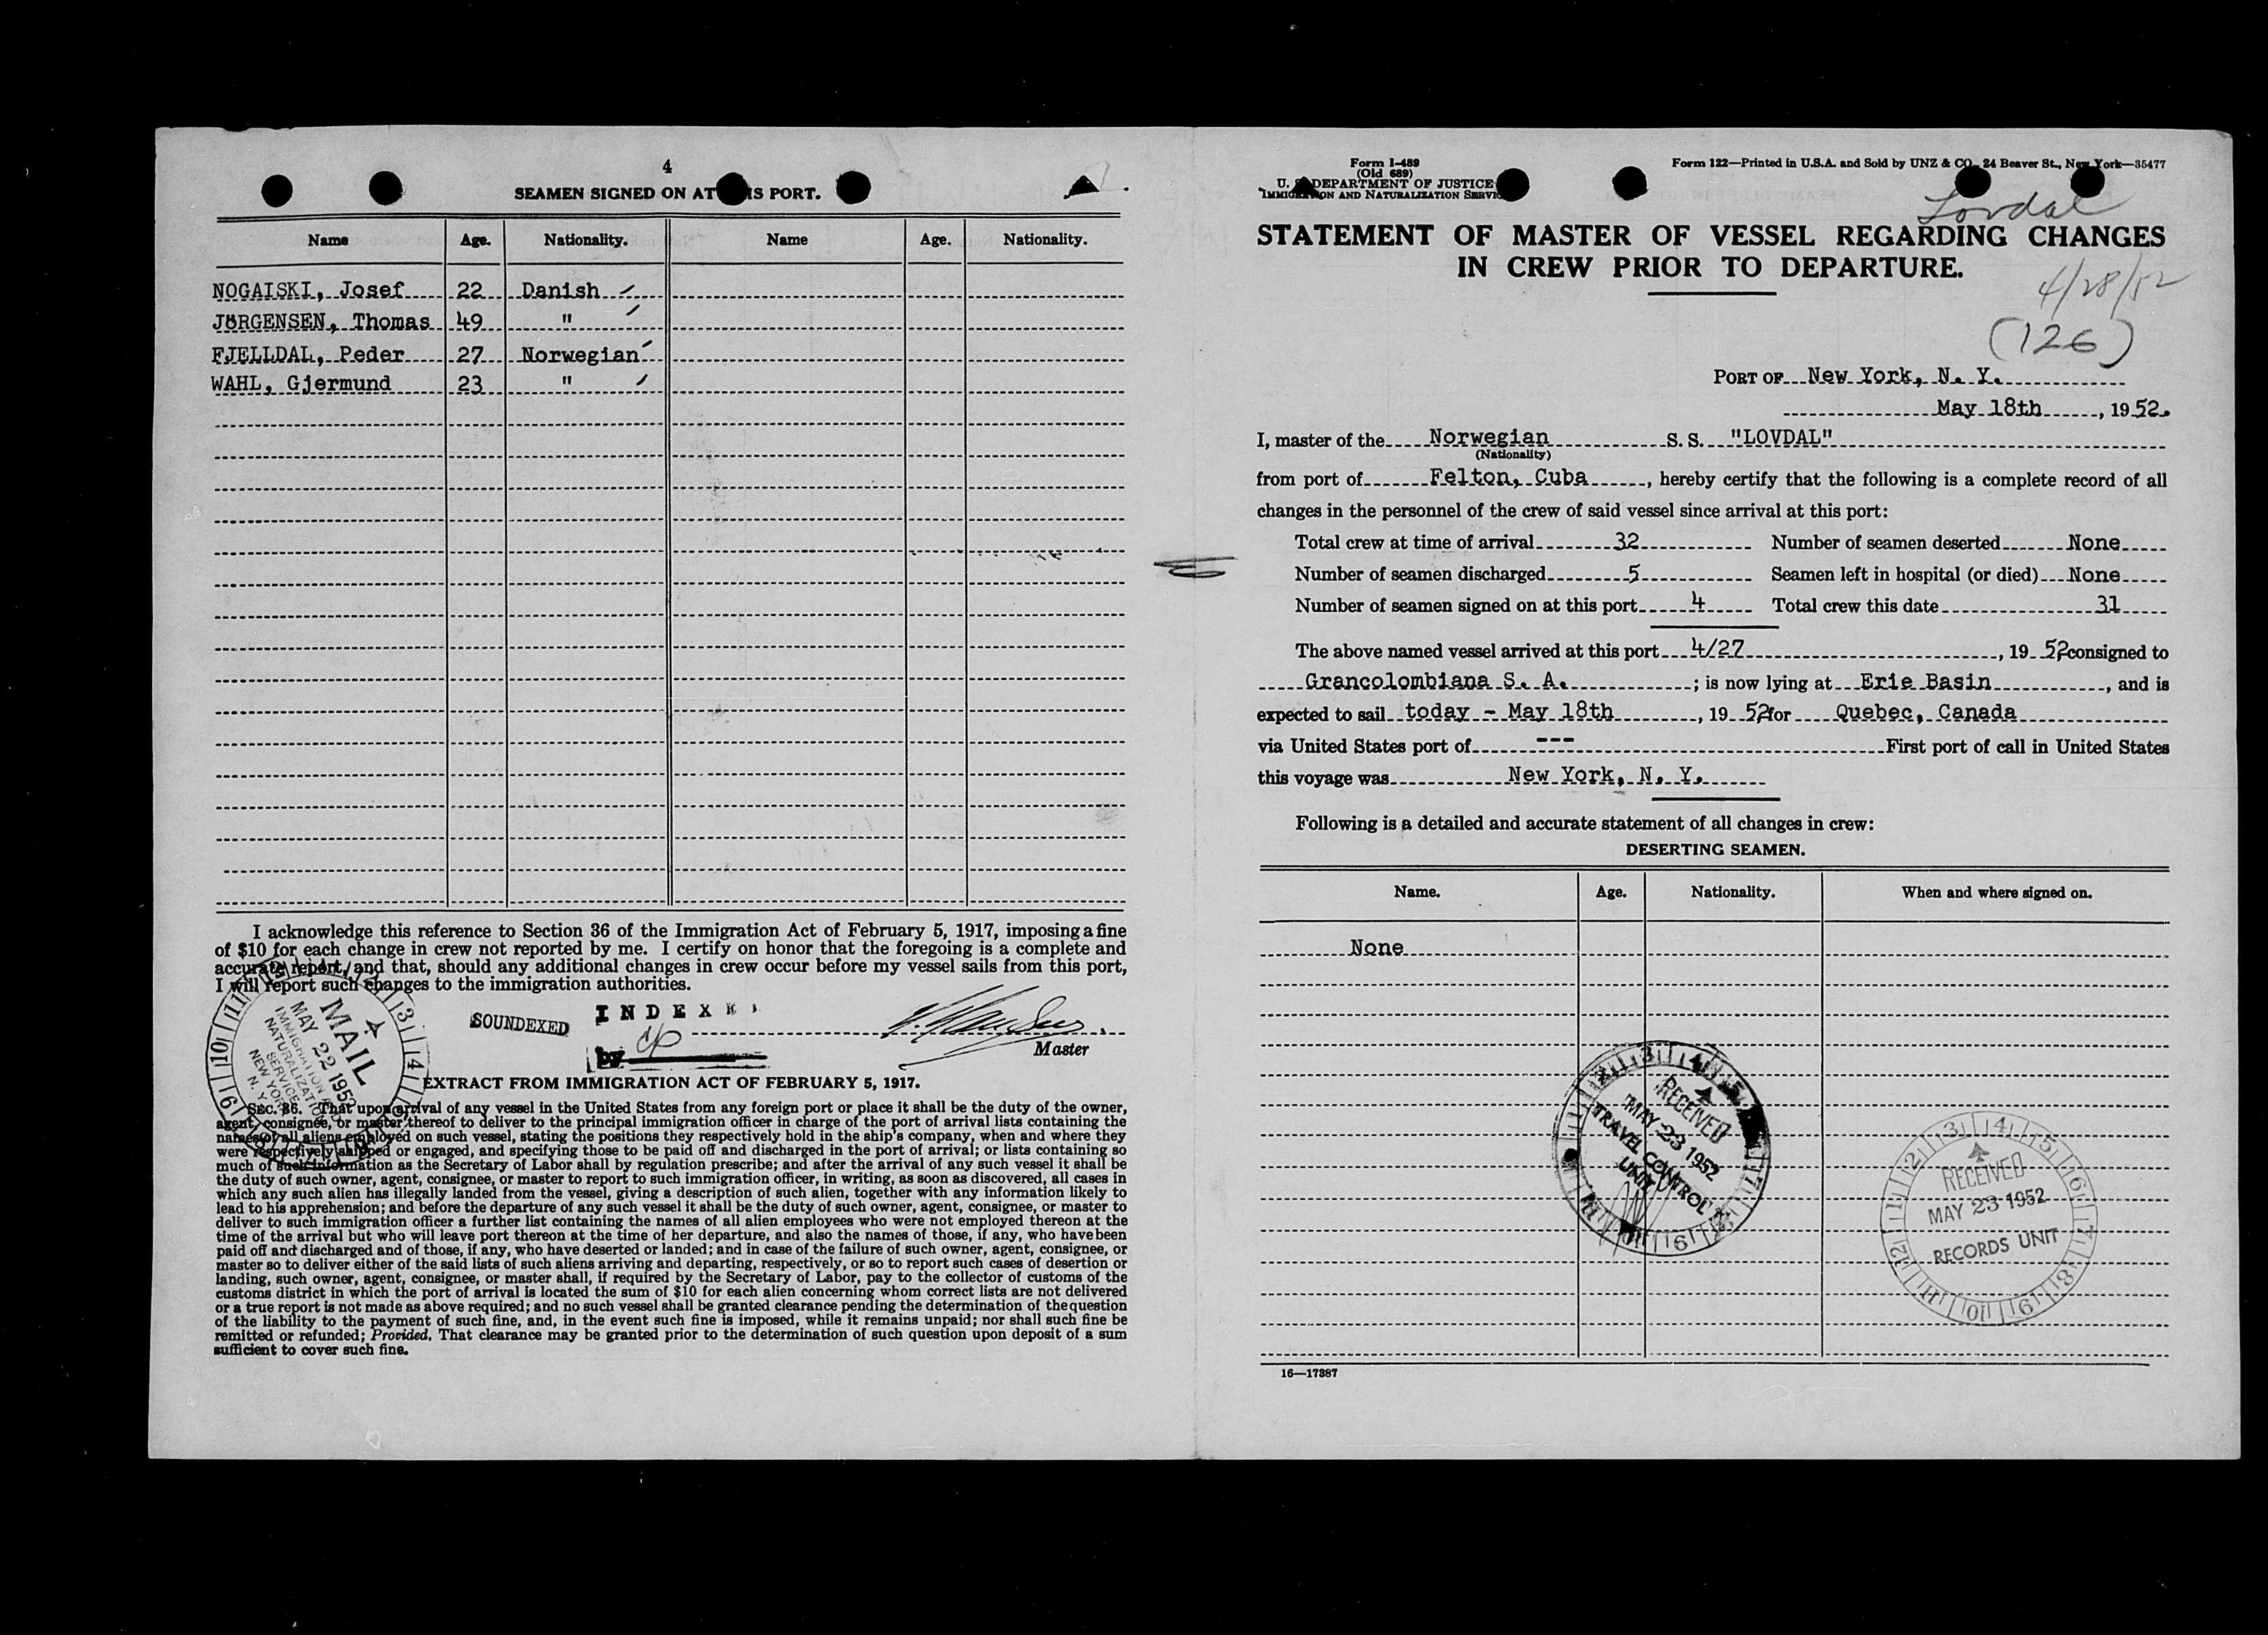 4
SEAMEN SIGNED ON AT IS PORT.
Name Age. Nationality. Name Age. Nationality.
NOGAISKI, Josef 22 Danish
JÖRGENSEN, Thomas 49 "
FJELLDAL, Peder 27 Norwegian
WAHL, Gjermund 23 "
I acknowledge this reference to Section 36 of the Immigration Act of February 5, 1917, imposing a fine
of $10 for each change in crew not reported by me. I certify on honor that the foregoing is a complete and
accurate report, and that, should any additional changes in crew occur before my vessel sails from this port,
I will report such changes to the immigration authorities.
SOUNDEXED
INDEXE
by
Master
MAIL
MAY 22 1952
IMMIGRATION AND
NATURALIZATION
SERVICE
NEW YORK
N. Y.
EXTRACT FROM IMMIGRATION ACT OF FEBRUARY 5, 1917.
SEC. 36. That upon arrival of any vessel in the United States from any foreign port or place it shall be the duty of the owner,
agent, consignee, or master thereof to deliver to the principal immigration officer in charge of the port of arrival lists containing the
names of all aliens employed on such vessel, stating the positions they respectively hold in the ship's company, when and where they
were respectively shipped or engaged, and specifying those to be paid off and discharged in the port of arrival; or lists containing so
much of such information as the Secretary of Labor shall by regulation prescribe; and after the arrival of any such vessel it shall be
the duty of such owner, agent, consignee, or master to report to such immigration officer, in writing, as soon as discovered, all cases in
which any such alien has illegally landed from the vessel, giving a description of such alien, together with any information likely to
lead to his apprehension; and before the departure of any such vessel it shall be the duty of such owner, agent, consignee, or master to
deliver to such immigration officer a further list containing the names of all alien employees who were not employed thereon at the
time of the arrival but who will leave port thereon at the time of her departure, and also the names of those, if any, who have been
paid off and discharged and of those, if any, who have deserted or landed; and in case of the failure of such owner, agent, consignee, or
master so to deliver either of the said lists of such aliens arriving and departing, respectively, or so to report such cases of desertion or
landing, such owner, agent, consignee, or master shall, if required by the Secretary of Labor, pay to the collector of customs of the
customs district in which the port of arrival is located the sum of $10 for each alien concerning whom correct lists are not delivered
or a true report is not made as above required; and no such vessel shall be granted clearance pending the determination of the question
of the liability to the payment of such fine, and, in the event such fine is imposed, while it remains unpaid; nor shall such fine be
remitted or refunded; Provided, That clearance may be granted prior to the determination of such question upon deposit of a sum
sufficient to cover such fine.
Form I-489
(Old 689)
U. S. DEPARTMENT OF JUSTICE
IMMIGRATION AND NATURALIZATION SERVICE
Form 122—Printed in U.S.A. and Sold by UNZ & CO., 24 Beaver St., New York—35477
Lovdal
STATEMENT OF MASTER OF VESSEL REGARDING CHANGES
IN CREW PRIOR TO DEPARTURE.
4/28/52
(126)
PORT OF New York, N. Y.
May 18th, 1952.
I, master of the Norwegian S. S. "LOVDAL"
(Nationality)
from port of Felton, Cuba, hereby certify that the following is a complete record of all
changes in the personnel of the crew of said vessel since arrival at this port:
Total crew at time of arrival 32 Number of seamen deserted None
Number of seamen discharged 5 Seamen left in hospital (or died) None
Number of seamen signed on at this port 4 Total crew this date 31
The above named vessel arrived at this port 4/27, 19 52 consigned to
Grancolombiana S. A.; is now lying at Erie Basin, and is
expected to sail today - May 18th, 19 52 for Quebec, Canada
via United States port of --- First port of call in United States
this voyage was New York, N. Y.
Following is a detailed and accurate statement of all changes in crew:
DESERTING SEAMEN.
Name. Age. Nationality. When and where signed on.
None
RECEIVED
MAY 23 1952
TRAVEL CONTROL
UNIT
RECEIVED
MAY 23 1952
RECORDS UNIT
16—17387